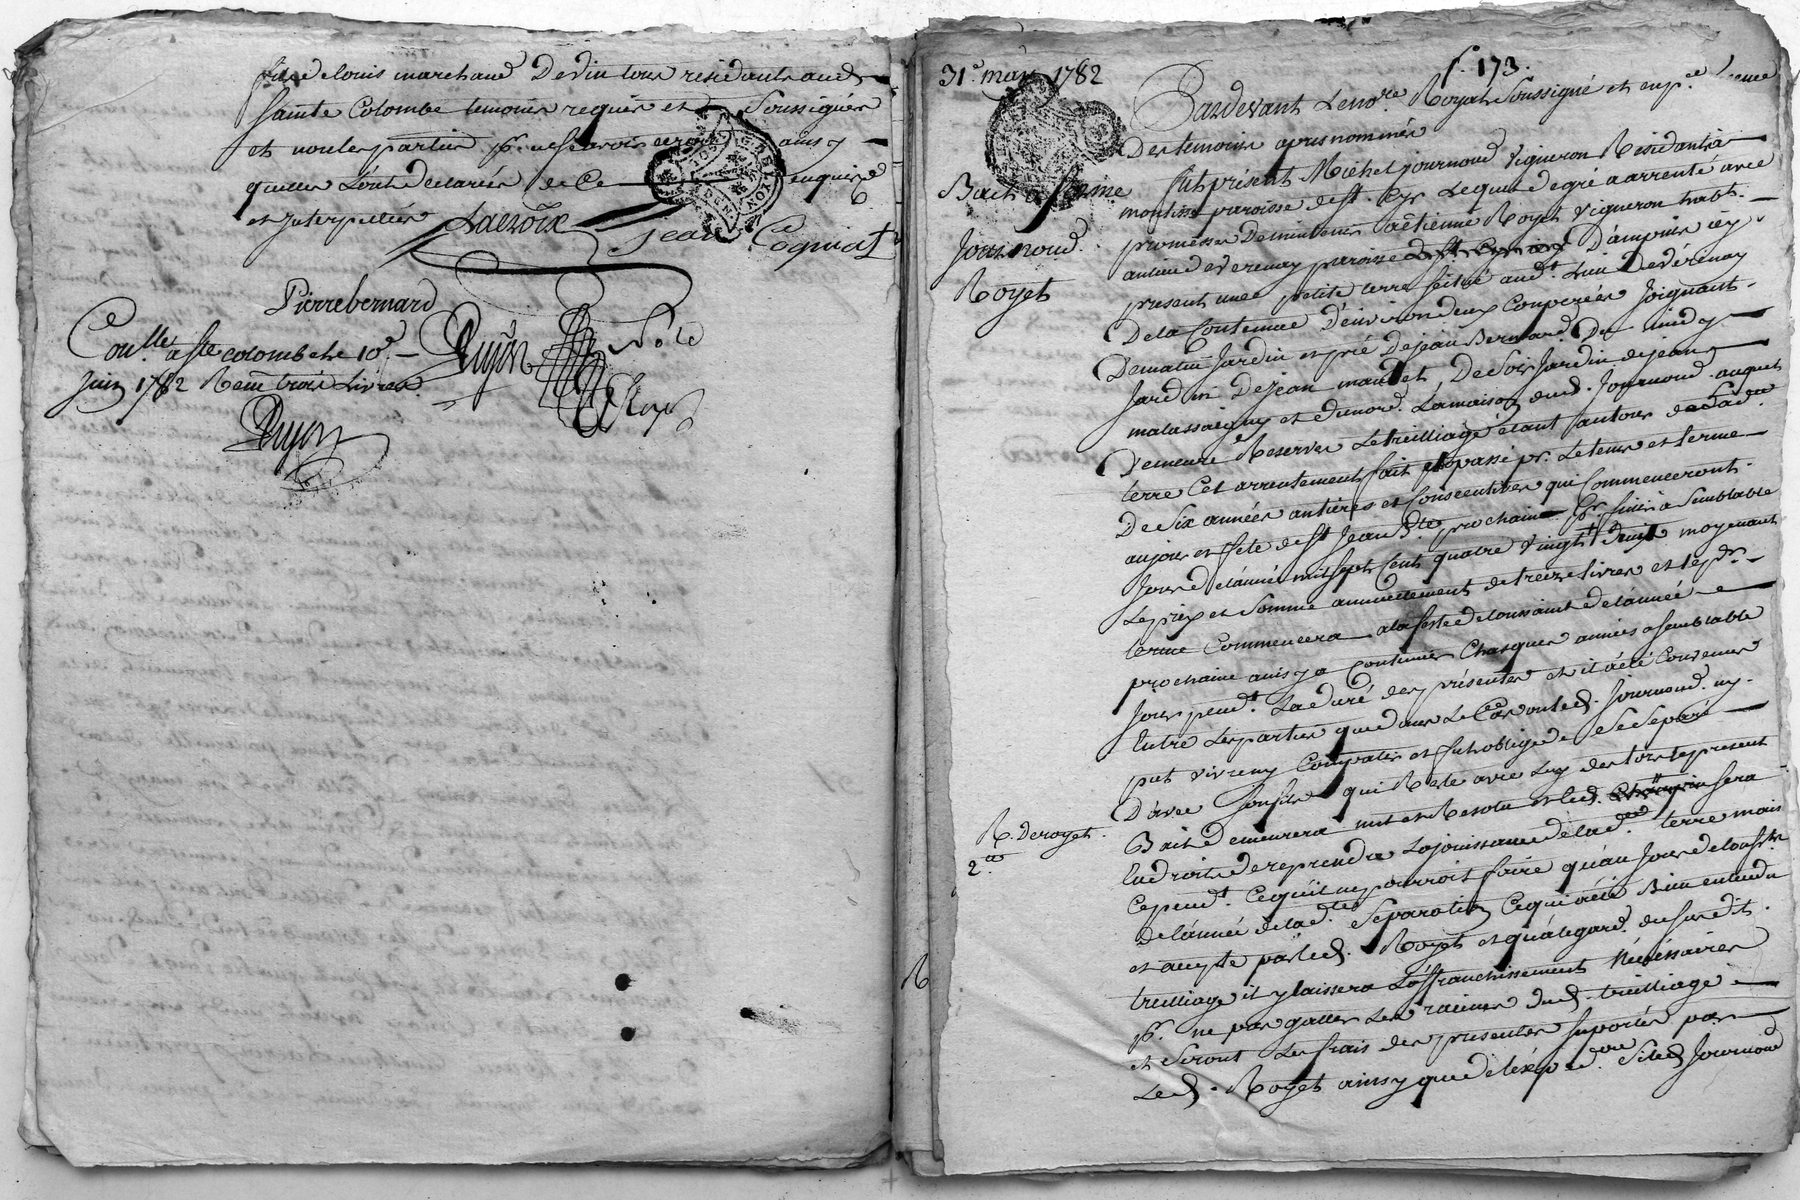 fils de Louis marchand de vin tous residants aud.
Sainte Colombe temoins requis et Soussignés
et non les parties pr. ne scavoir ecrire ainsy
quelles l'ont declarées de ce enquise
et jnterpellées Lacroix
Jean Coquiat
Pierre bernard
Conllé a Ste colombe le 10e.
Juin 1782 Reçu trois Livres
Guyon
Guyon
Note
Royale
31e. may 1782
f. 173.
Bail a ferme
Journoud.
Royet
Pardevant Le nore Royal Soussigné et en pce
Des temoins apres nommés
fut présent Michel journoud Vigneron Residant à
montlis paroisse de St. Cyr Lequel de gré a arrenté avec
promesse De maintenir a etienne Royet Vigneron habt.
au lieu de verenay paroisse D'ampuis icy
present une petite terre scitué aud. Lieu De Vérenay
De la Contenue D'environ deux Couperées joignant
De matin Jardin et pré De jean Bernard De midy
Jardin De jean maudet, De Soir Jardin de jean
malassaigny et du nord La maison dud. Journoud auquel
Demeure Reservé Le treilliage étant autour de lade
terre Cet arrentement fait et passé pr. Le tems et terme
De Six années entières et Consecutives qui Commenceront
au jour et fete de St Jean Bte prochain pr. finir a Semblable
Jour de l'année mil sept Cent quatre vingt huit moyenant
Le prix et Somme annuellement de treize livres et le pr.
terme Commencera a la feste de toussaint de l'année
prochaine ainsy a Continuer Chasques années a semblable
jour pendt. La duré des présentes et il a été Convenu
Entre Les parties que dans Le Cas ou led. Journoud ny
put vivre ny Compatir et fut obligé de Se Separé
D'avec Son fils qui Reste avec Luy des lors le present
Bail demeurera nul et Resolu et led. sera
En droit de reprendre La jouissance de lade. terre mais
Cepend. Ce qu'il ne pourroit faire qu'au jour de touss.
de l'année de lad. Separation Ce qui a été Bien entendu
et accepté par led. Royet et qu'a legard du susdit
treilliage il y laissera L'affranchissement Nécéssaires
pr. ne pas gatter Les racines dud. treilliage
et Seront Les frais des presentes Suportés par
Led. Royet ainsy que de l'expedon. Si led Journoud
R. De royet.
2ll.